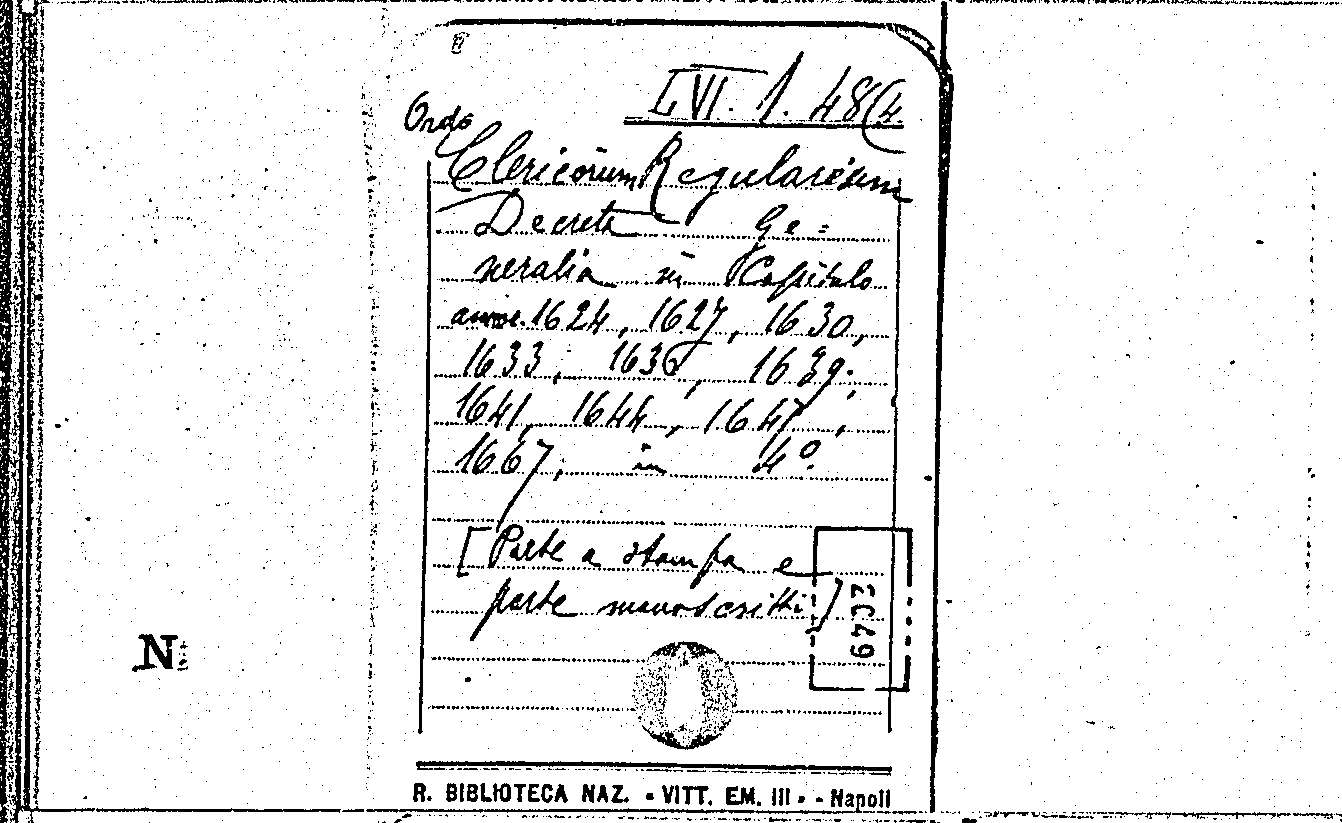 LVI. 1. 48(4.
Ordo
Clericorum Regularium
Decreta Ge=
neralia in Capitulo
1624, 1627, 1630,
1633, 1636, 1639,
1641, 1644, 1647,
1667, in 4º.
[Parte a stampa e
parte manoscritti]
2C49
N
R. BIBLIOTECA NAZ. - VITT. EM. III - - Napoli